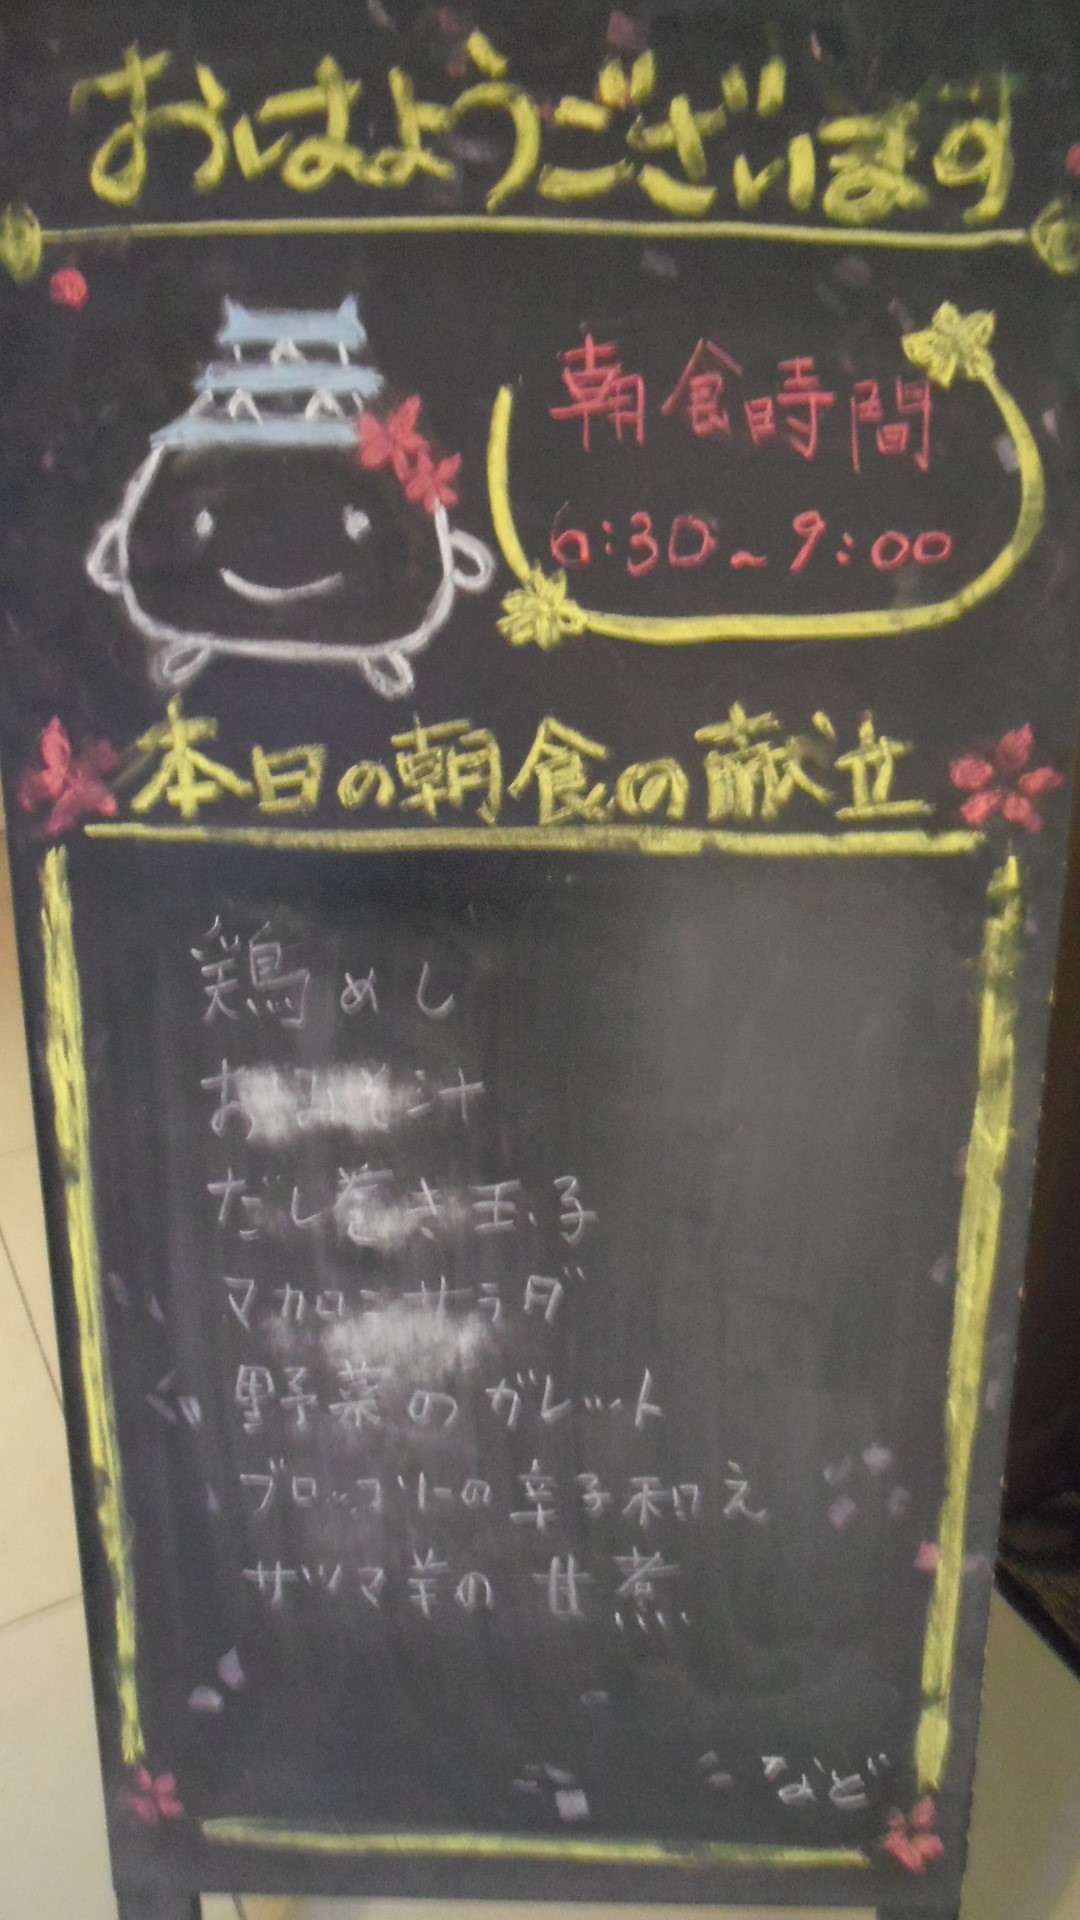 おはようございます
朝食時間
6:30~9:00
本日の朝食の献立
鶏めし
おみそ汁
だし巻き玉子
マカロニサラダ
野菜のガレット
ブロッコリーの辛子和え
サツマ芋の甘煮
など